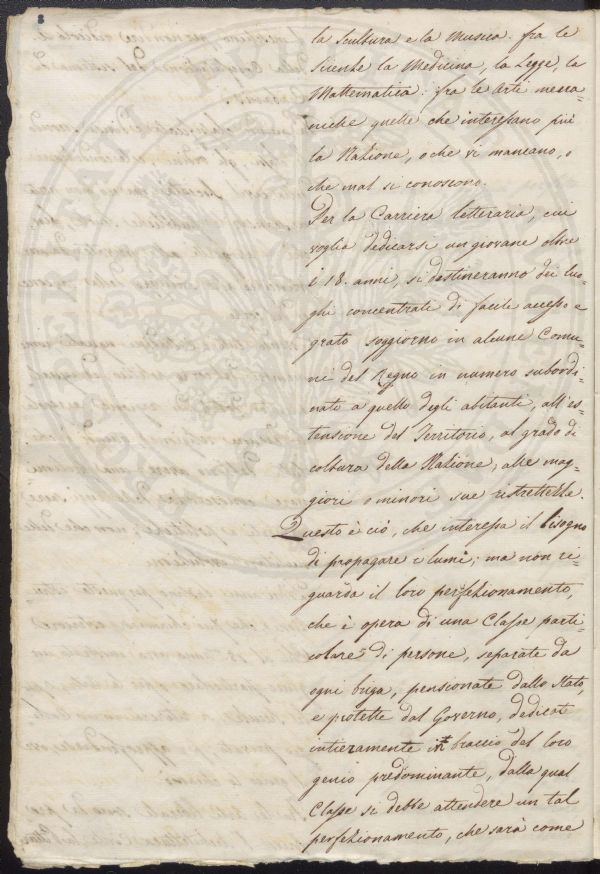 la Scultura e la Musica: fra le
Scienze la Medicina, la Legge, la
Mathematica: fra le Arti mecca=
niche quelle che interessano più
la Nazione, o che vi mancano, o
che mal si conoscono.
Per la Carriera letteraria, cui
voglia dedicarsi un giovane oltre
i 18. anni, si destineranno dei luo=
ghi concentrati di facile accesso e
grato soggiorno in alcune Comu=
ni del Regno in numero subordi=
nato a quello degli abitanti, all'es=
tensione del Territorio, al grado di
coltura della Nazione, alle mag=
giori o minori sue ristrettezze.
Questo è ciò, che interessa il bisogno
di propagare i lumi; ma non ri=
guarda il loro perfezionamento,
che è opera di una Classe parti=
colare di persone, separate da
ogni briga, pensionate dallo Stato,
e protette dal Governo, dedicate
intieramente in braccio del loro
genio predominante, dalla qual
Classe si debbe attendere un tal
perfezionamento, che sarà come